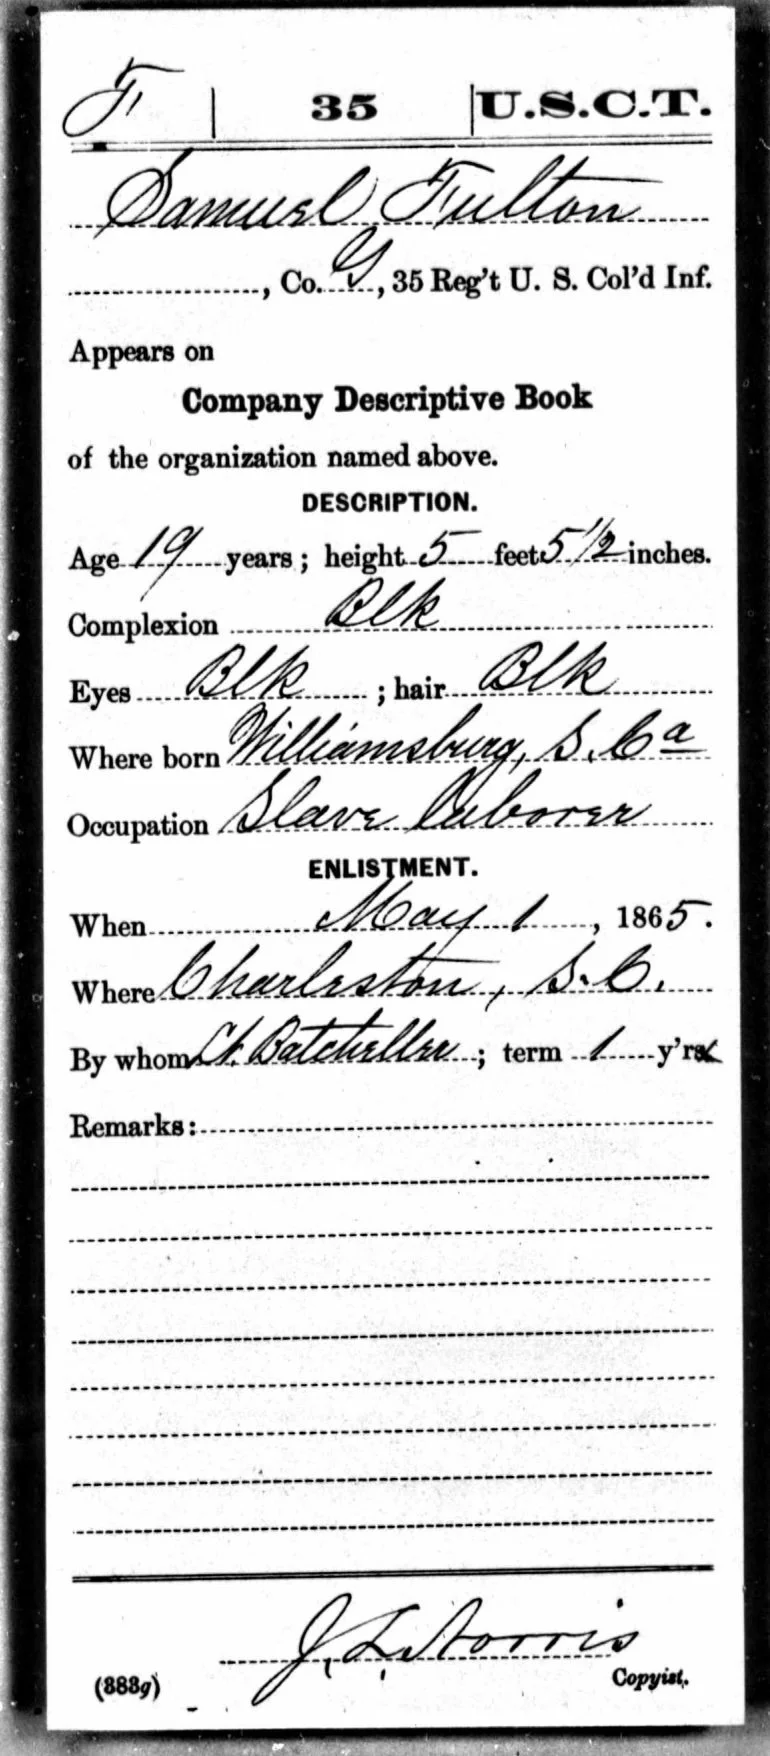 F | 35 | U.S.C.T.
Samuel Fulton
, Co. G, 35 Reg't U. S. Col'd Inf.
Appears on
Company Descriptive Book
of the organization named above.
DESCRIPTION.
Age 19 years; height 5 feet 5 1/2 inches.
Complexion Blk
Eyes Blk ; hair Blk
Where born Williamsburg, S. Ca
Occupation Slave Laborer
ENLISTMENT.
When May 1, 1865.
Where Charleston, S.C.
By whom Lt. Batcheller ; term 1 y'rs
Remarks:
J. L. Norris
(383g) Copyist.